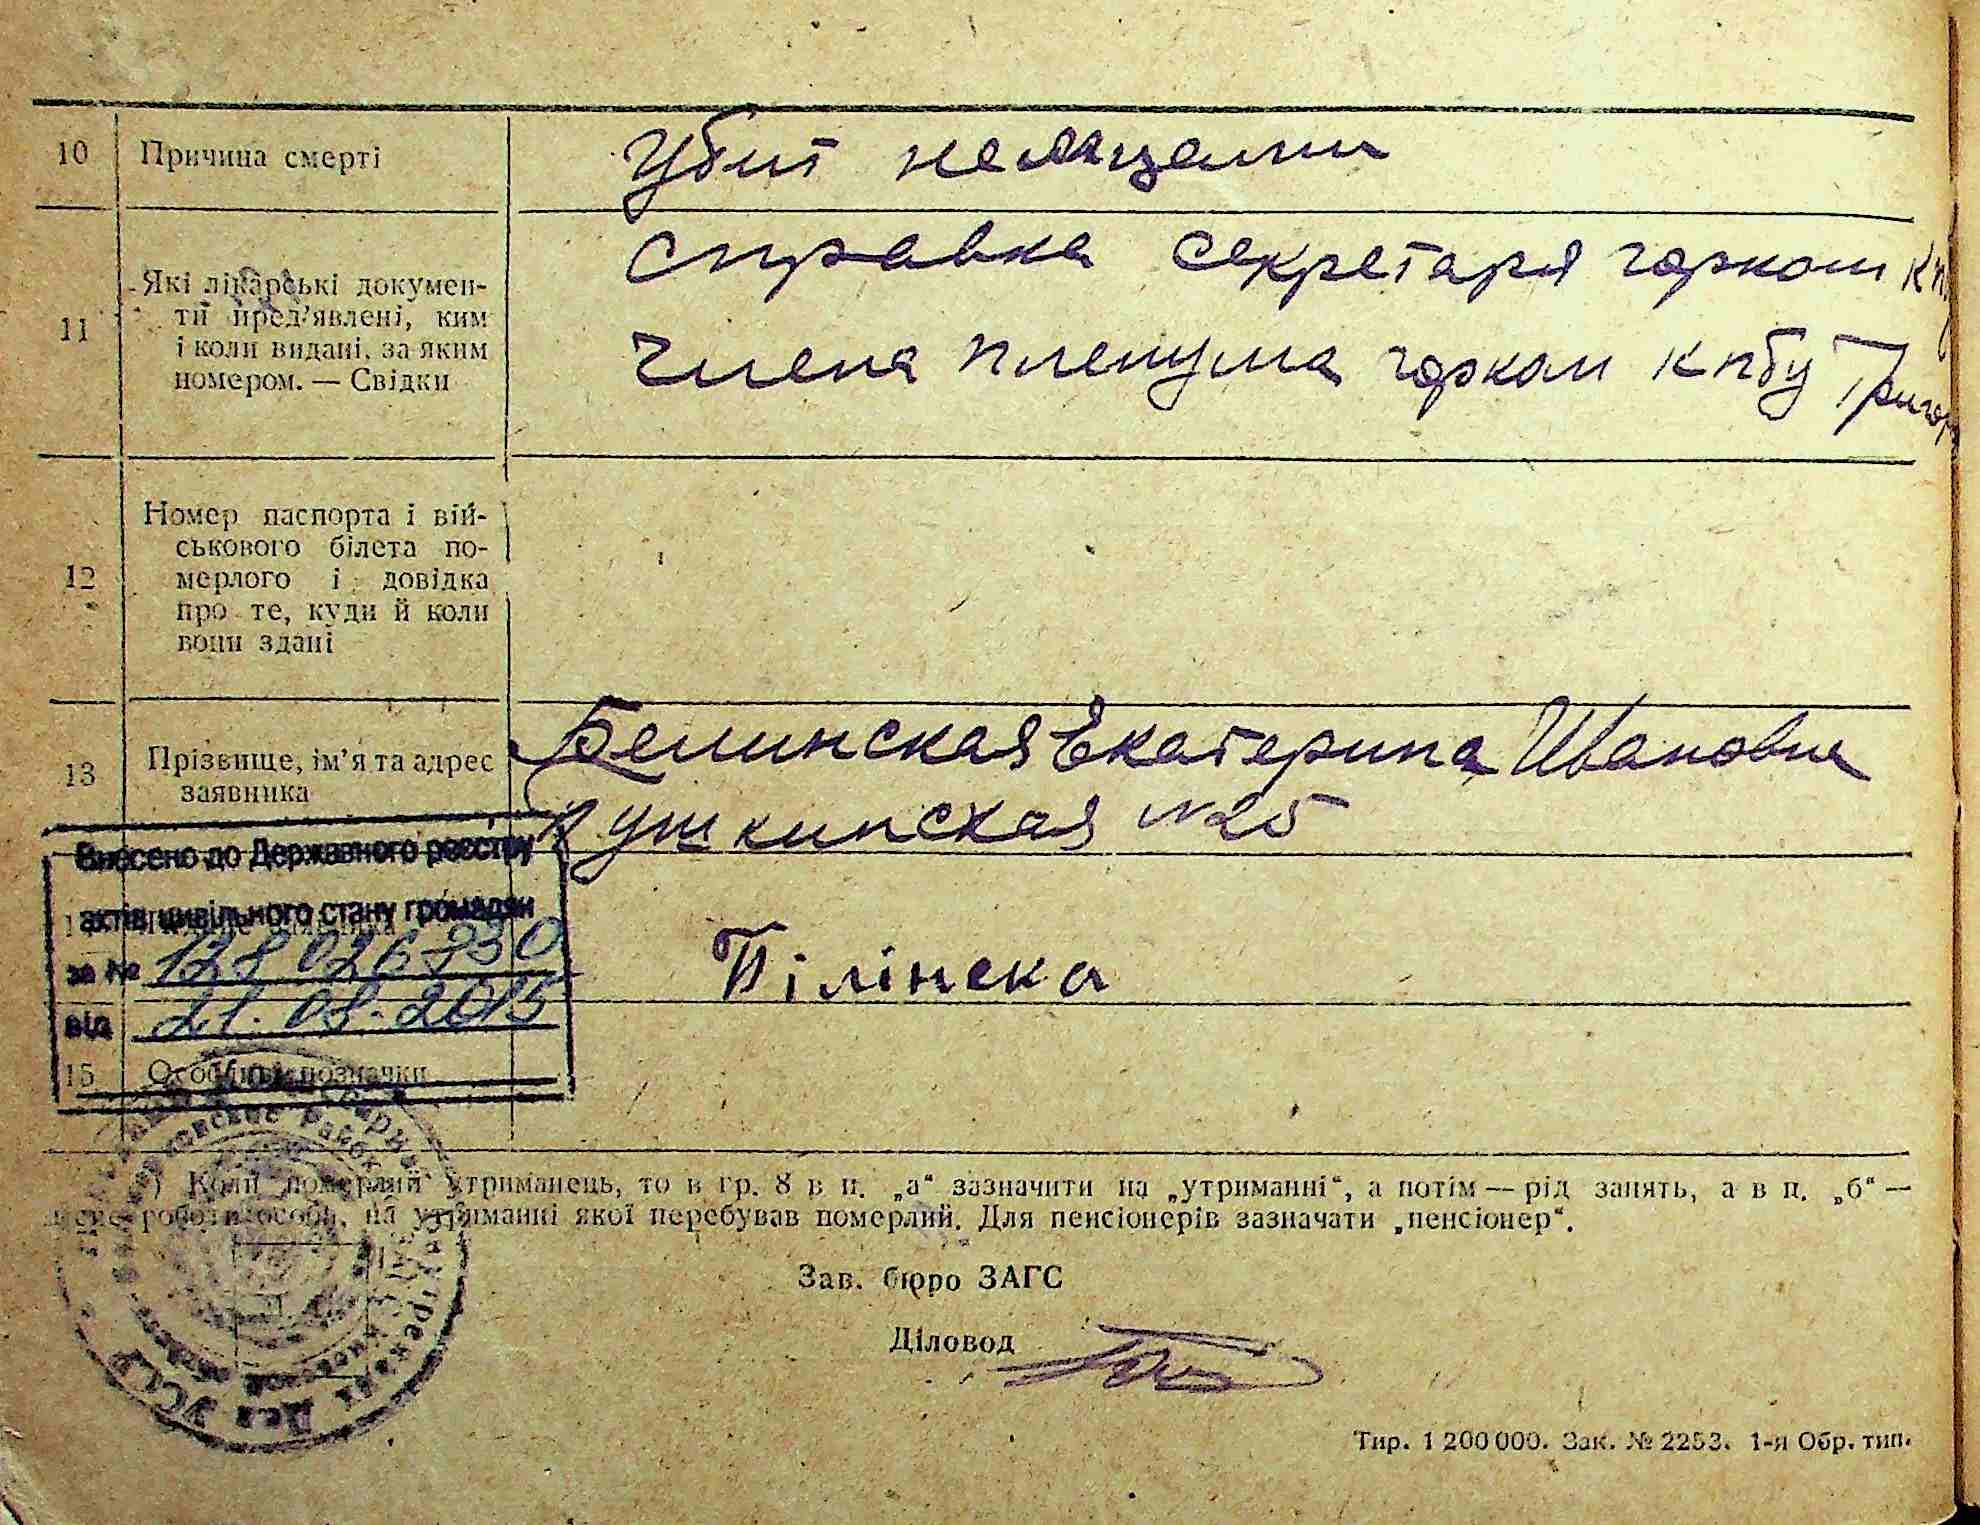 10 Причина смерті
Убит немцами
11 Які лікарські докумен-
ти пред'явлені, ким
і коли видані, за яким
номером. — Свідки
Справка секретаря горком
члена пленума горком КПбУ
12 Номер паспорта і вій-
ськового білета по-
мерлого і довідка
про те, куди й коли
вони здані
13 Прізвище, ім'я та адрес
заявника
Белинская Екатерина Ивановна
Пушкинская №25
Внесено до Державного реєстру
актів цивільного стану громадян
за №
від 21.08.2015
Білінска
15 Особливі позначки
) Коли померлий утриманець, то в гр. 8 в п. „а“ зазначити на „утриманні“, а потім — рід занять, а в п. „б“ —
роботи особи, на утриманні якої перебував померлий. Для пенсіонерів зазначати „пенсіонер“.
Зав. бюро ЗАГС
Діловод
УССР
Тир. 1 200 000. Зак. № 2253. 1-я Обр. тип.